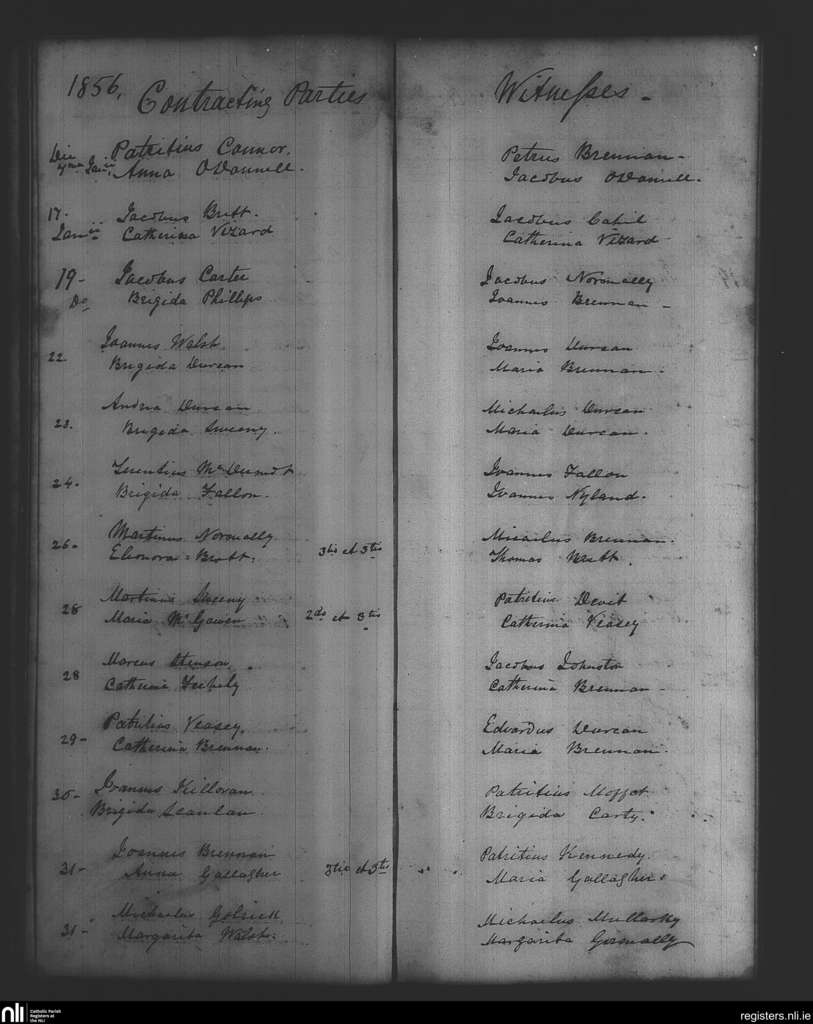 1856,
Contracting Parties
Witnesses -
Die Patritius Connor.
Janii, Anna O'Donnell.
Petrus Brennan -
Jacobus O'Donnell.
17. Jacobus Britt.
Janii Catherina Vizard
Jacobus Cahil
Catherina Vizard
19- Jacobus Carter
Do Brigida Phillips
Jacobus Noronally
Joannes Brennan -
22 Joannes Walsh
Brigida Durcan
Joannes Durcan
Maria Brennan.
23. Andrea Durcan
Brigida Sweeny.
Michaelus Durcan
Maria Durcan.
24-
Brigida Fallon.
Joannes Fallon
Joannes Nyland.
26- Martinus Noronally
Elionora Britt. 3tio et 3tio
Micailus Brennan.
Thomas Britt.
28 Martinus Sweeny
Maria McGowen 2do et 3tio
Patritius Devit
Catherina Veasey
28 Marcus Stenson
Catherina
Jacobus Johnston
Catherina Brennan
29- Patritius Veasey.
Catherina Brennan.
Edvardus Durcan
Maria Brennan.
30- Joannes Killoran
Brigida Scanlan
Patritius Moffet
Brigida Carty.
31- Joannes Brennan
Anna Gallagher 3tio et 3tio
Patritius Kennedy.
Maria Gallagher
31- Michaelus
Margarita Walsh.
Michaelus Mullarky
Margarita Gormally
nli
Catholic Parish
Registers at
the NLI
registers.nli.ie